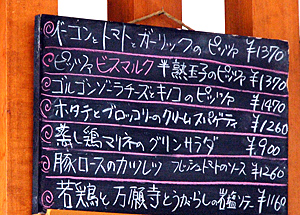 ベーコンとトマトとガーリックのピッツァ ¥1370
ピッツァビスマルク 半熟玉子のピッツァ ¥1370
ゴルゴンゾーラチーズとキノコのピッツァ ¥1470
ホタテとブロッコリのクリームスパゲティ ¥1260
蒸し鶏マリネのグリーンサラダ ¥900
豚ロースのカツレツ フレッシュトマトのソース ¥1260
若鶏と万願寺とうがらしの岩塩ソテー ¥1160